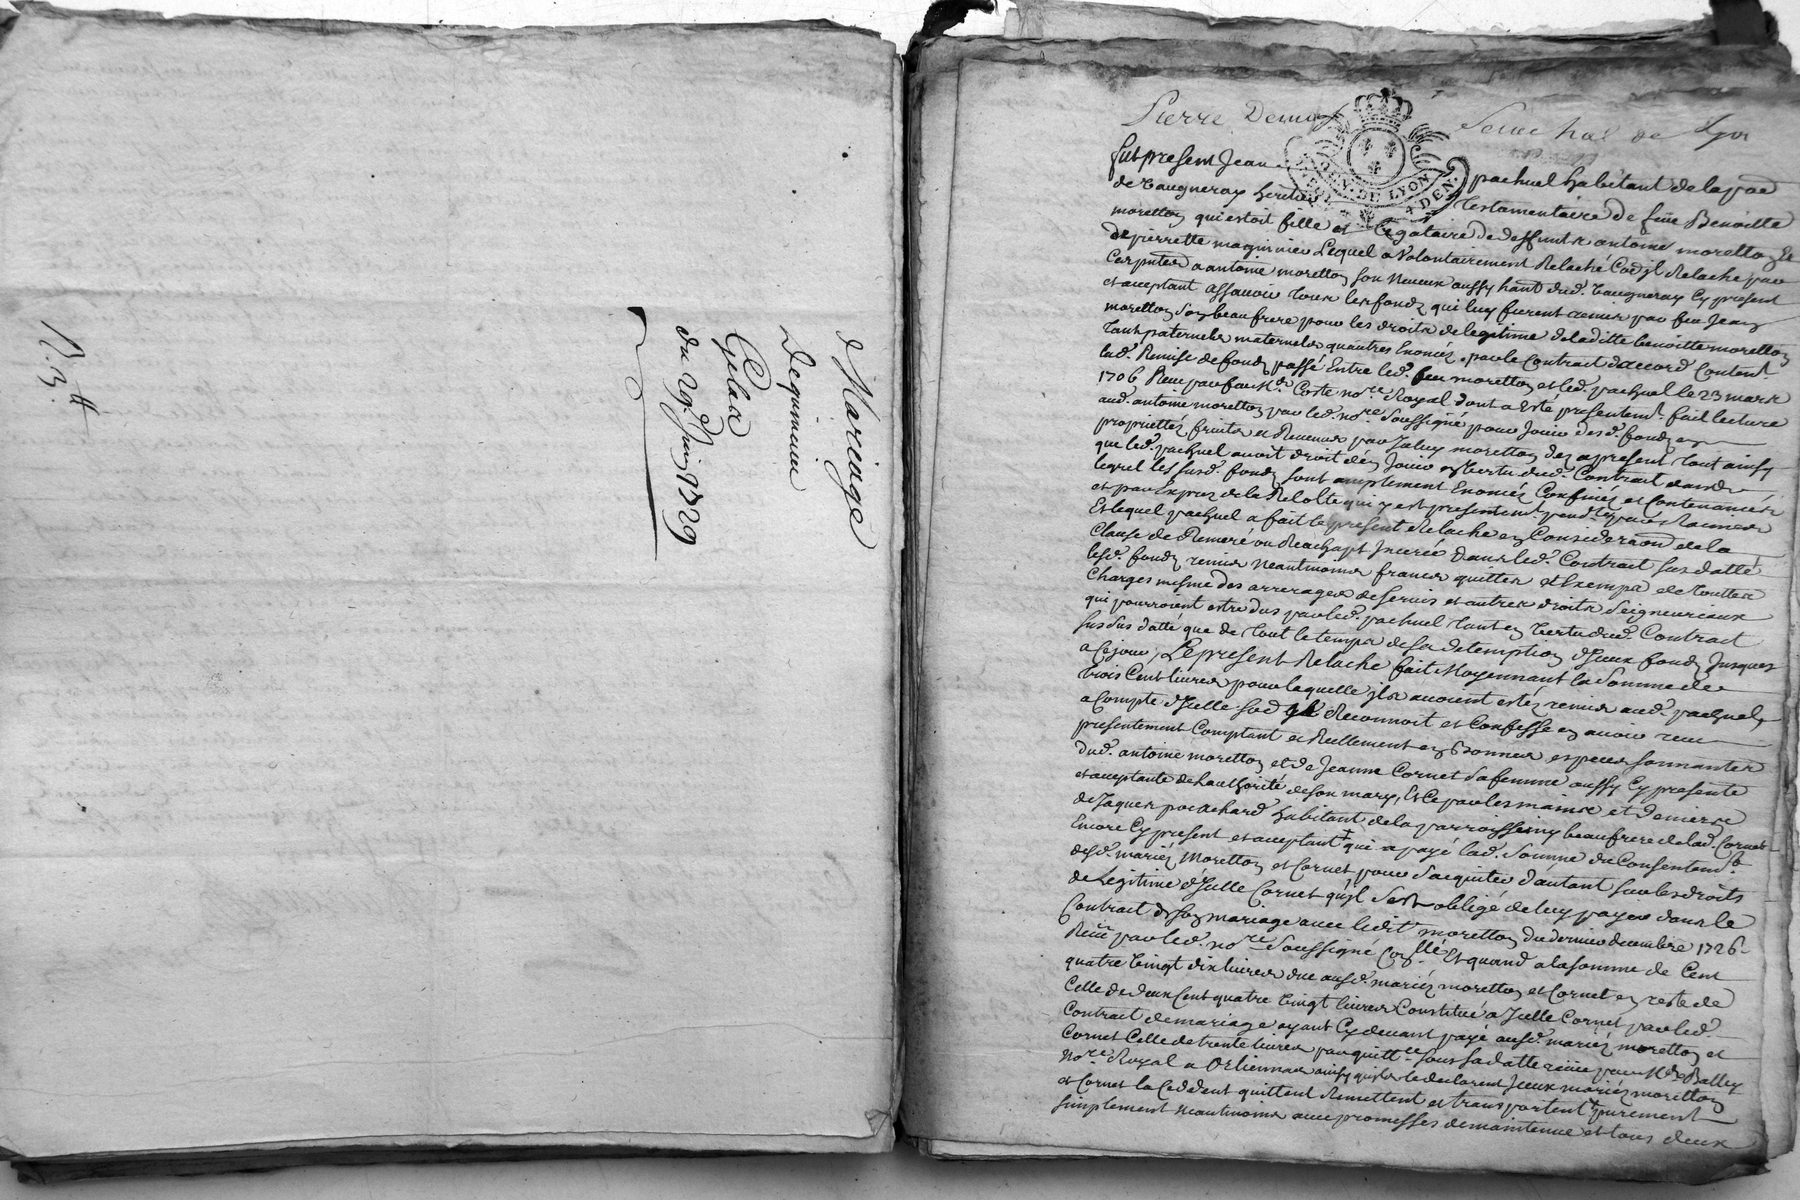 Mariage
Dequimeieu
Gelas
du 29e. Juin 1729
R. 3 tt
Pierre Senechal de Lyon
GEN. DE LYON
4 DEN.
fut present Jean pachuel habitant de la par
de Vaugneray heritier Testamentaire de feüe Benoitte
moretton qui estoit fille et Legataire de deffuncts antoine moretton Et
de pierrette magninieu Lequel a Volontairement Relaché Co'e jl Relache par
Ces puted a antoine moretton son Neueux aussy hant dud. Vaugneray Cy present
et aceptant assauoir tous les fondz qui luy furent remis par feu Jean
moretton son beaufrere pour les droits de legitime de laditte benoitte moretton
tant paternels maternels qu'autres Enoncés par le Contrat d'accord Content.
lad. Remise de fondz passé Entre led. feu moretton et led. pachuel le 23 mars
1706 Receu par feu Me. Coste no.re Royal dont a Esté presentem.t fait lecture
aud. antoine moretton par led. no.re soussigné pour Jouir desd. fondz en
proprietté fruits et Reuenus par Jcelluy moretton dez apresent tout ainsy
que led. pachuel auoit droit d'en Jouir en Vertu dud. Contrat dans
lequel les susd. fondz sont amplement Enoncés Confinés et Contenancés
et par Exprez de la Relolte qui y est presentem.t pend.te par Racines
Et lequel pachuel a fait le present Relache en Consideraon de la
Clause de Remeré ou Reachapt Jnserée dans led. Contrat sus datté
lesd. fondz remis neantmoins francs quittes et Exempts de touttes
Charges mesme des arrerages de seruis et autres droits seigneuriaux
qui pourroient estre dus par led. pachuel tant en Vertu dud. Contrat
susdus datté que de tout le temps de sa detemption d'Jceux fondz Jusques
a Cejour, Le present Relache fait Moyennant la somme de
trois Cent liures pour laquelle jls auoient estés remis aud. pachuel,
a Compte d'Jcelle Reconnoit et Confesse en auoir receu
presentement Comptant et Reellement en bonnes especes sonnantes
dud. antoine moretton et de Jeanne Cornet sa femme aussy Cy presente
et aceptante de Lauthorité de son mary, Et Ce par les mains et deniers
de Jaques pocachard habitant de la parroisse beaufrere de lad. Cornet
Encore Cy present et aceptant qui a payé lad. somme du Consentem.t
desd. mariés Moretton et Cornet pour s'acquiter d'autant sur les droits
de Legitime d'Jcelle Cornet qu'jl s'est obligé de luy payer dans le
Contrat de son mariage auec ledit moretton du dernier decembre 1726
Receu par led. no.re soussigné Et quand a la somme de Cent
quatre Vingt dix liures due ausd. mariés moretton et Cornet en reste de
Celle de deux Cent quatre Vingt liures Constitué a Jcelle Cornet par led.
Contrat de mariage ayant Cy deuant payé ausd. mariés moretton et
Cornet Celle de trente liures par quitt.ce sous sa datte recüe par Me. Balley
No.re Royal a Orliennas ainsy qu'jls le declarent Jceux mariés moretton
et Cornet la Ceddent quittent Remettent et transportent purement
simplement neantmoins auec promesses de maintenue et tous deux